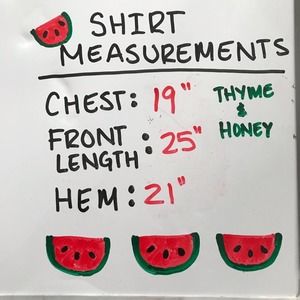 SHIRT
MEASUREMENTS
CHEST: 19"
THYME
&
HONEY
FRONT
LENGTH: 25"
HEM: 21"